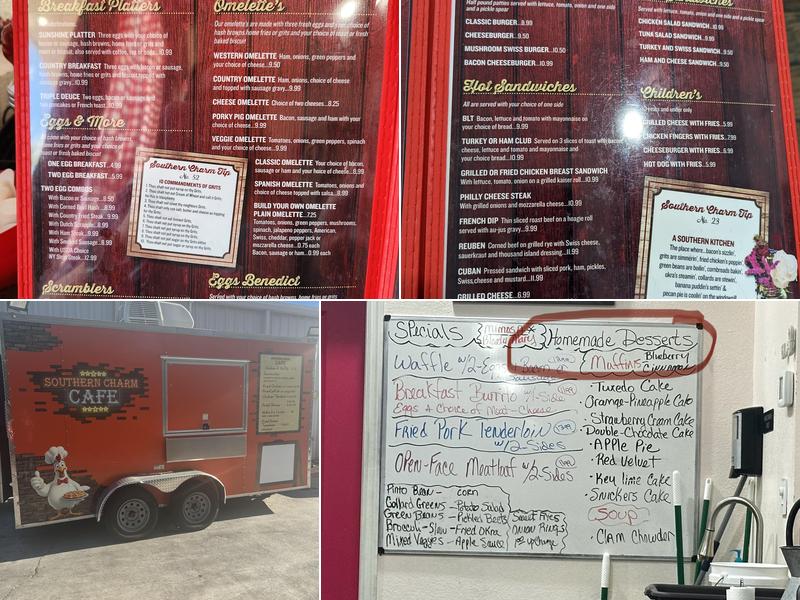 Breakfast Platters
SUNSHINE PLATTER Three eggs with your choice of
COUNTRY BREAKFAST Three eggs with bacon or sausage,
hash browns, home fries or grits and biscuit topped with
sausage gravy...10.99
TRIPLE DEUCE Two eggs, bacon or sausage and
two pancakes or French toast...10.99
Eggs & More
All come with your choice of hash browns,
home fries or grits and choice of
toast or biscuit
ONE EGG BREAKFAST...4.99
TWO EGG BREAKFAST...5.99
TWO EGG COMBOS
With Bacon or Sausage...8.50
With Corned Beef Hash...8.99
With Country Fried Steak...9.99
With Dutch Scrapple...8.99
With Ham Steak...9.99
With Smoked Sausage...8.99
With USDA Choice
NY Strip Steak...12.99
Scramblers
Omelette's
Our omelette's are made with three fresh eggs and your choice of
hash browns home fries or grits and your choice of toast or
baked biscuit
WESTERN OMELETTE Ham, onions, green peppers and
your choice of cheese...9.50
COUNTRY OMELETTE Ham, onions, choice of cheese
and topped with sausage gravy...9.99
CHEESE OMELETTE Choice of two cheeses...8.25
PORKY PIG OMELETTE Bacon, sausage and ham with your
choice of cheese...9.99
VEGGIE OMELETTE Tomatoes, onions, green peppers, spinach
and your choice of cheese...8.99
CLASSIC OMELETTE Your choice of bacon,
sausage or ham and your choice of cheese...8.99
SPANISH OMELETTE Tomatoes, onions and
choice of cheese topped with salsa...8.99
BUILD YOUR OWN OMELETTE
PLAIN OMELETTE...7.25
Tomatoes, onions, green peppers, mushrooms,
spinach, jalapeño peppers, American,
Swiss, cheddar, pepper jack or
mozzarella cheese...0.75 each
Bacon, sausage or ham...0.99 each
Eggs Benedict
Served with your choice of hash browns, home fries or grits
Southern Charm Tip
No. 52
10 COMMANDMENTS OF GRITS
Half pound patties served with lettuce, tomato, onion and one side
and a pickle spear
CLASSIC BURGER...8.99
CHEESEBURGER...9.50
MUSHROOM SWISS BURGER...10.50
BACON CHEESEBURGER...10.99
Hot Sandwiches
All are served with your choice of one side
BLT Bacon, lettuce and tomato with mayonnaise on
your choice of bread...9.99
TURKEY OR HAM CLUB Served on 3 slices of toast with bacon,
cheese, lettuce and tomato and mayonnaise and
your choice bread...10.99
GRILLED OR FRIED CHICKEN BREAST SANDWICH
With lettuce, tomato, onion on a grilled kaiser roll...10.99
PHILLY CHEESE STEAK
With grilled onions and mozzarella cheese...10.99
FRENCH DIP Thin sliced roast beef on a hoagie roll
served with au-jus gravy...9.99
REUBEN Corned beef on grilled rye with Swiss cheese,
sauerkraut and thousand island dressing...11.99
CUBAN Pressed sandwich with sliced pork, ham, pickles,
Swiss,cheese and mustard...11.99
GRILLED CHEESE...6.99
Sandwiches
Served with lettuce, tomato, onion and one side and a pickle spear
CHICKEN SALAD SANDWICH...10.99
TUNA SALAD SANDWICH...9.99
TURKEY AND SWISS SANDWICH...9.50
HAM AND CHEESE SANDWICH...9.50
Children's
and under only
GRILLED CHEESE WITH FRIES...5.99
CHICKEN FINGERS WITH FRIES...7.99
CHEESEBURGER WITH FRIES...6.99
HOT DOG WITH FRIES...5.99
Southern Charm Tip
No. 23
A SOUTHERN KITCHEN
The place where...bacon's sizzlin',
grits are simmerin', fried chicken's poppin',
green beans are boilin', cornbreads bakin',
okra's steamin', collards are stewin',
banana puddin's settin' &
pecan pie is coolin' on the windowsill
SOUTHERN CHARM
CAFE
Specials
Mimosa
Bloody Mary
Homemade Desserts
Waffle w/2-Eggs
Bacon or
Sausage
Muffins
Blueberry
Cinnamon
Breakfast Burrito w/1-Side
Eggs & Choice of Meat-Cheese
Fried Pork Tenderloin
w/2-Sides
Open-Face Meatloaf w/2-Sides
• Tuxedo Cake
• Orange-Pineapple Cake
• Strawberry Cream Cake
• Double-Chocolate Cake
• Apple Pie
• Red Velvet
• Key lime Cake
• Snickers Cake
Soup
• Clam Chowder
Pinto Bean - corn
Collard Greens - Potato Salad
Green Beans - Pickled Beets
Broccoli-Slaw - Fried Okra
Mixed Veggies - Apple Sauce
Sweet Fries
Onion Rings
upcharge